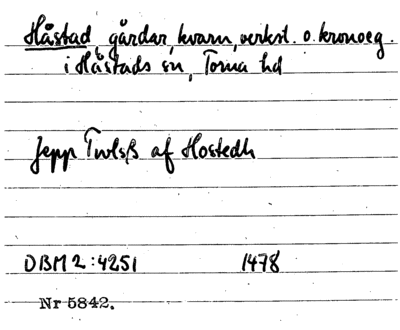 Håstad, gårdar, kvarn, verkst. o. kronoeg.
i Håstads sn, Torna hd
Jepp Twlsß af Hostedh
DBM 2:4251 1478
Nr 5842.